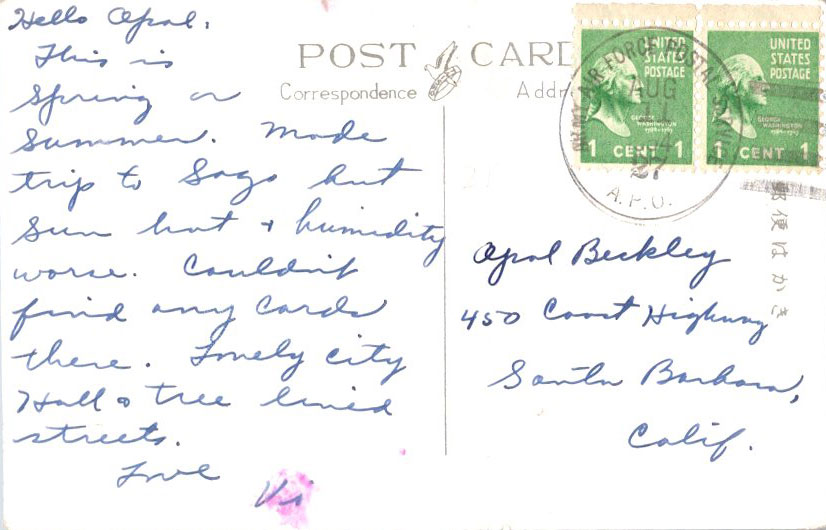 Hello Opal,
This is
Spring or
Summer. Made
trip to Saga but
sun hot + humidity
worse. Couldn't
find any cards
there. Lovely city
Hall & tree lined
streets.
Love
Vi
POST CARD
Correspondence
Addr
UNITED
STATES
POSTAGE
GEORGE
WASHINGTON
1 CENT 1
UNITED
STATES
POSTAGE
GEORGE
WASHINGTON
1 CENT 1
ARMY AIR FORCE POSTAL
AUG
A.P.O.
郵便はかき
Opal Beckley
450 Coast Highway
Santa Barbara,
Calif.